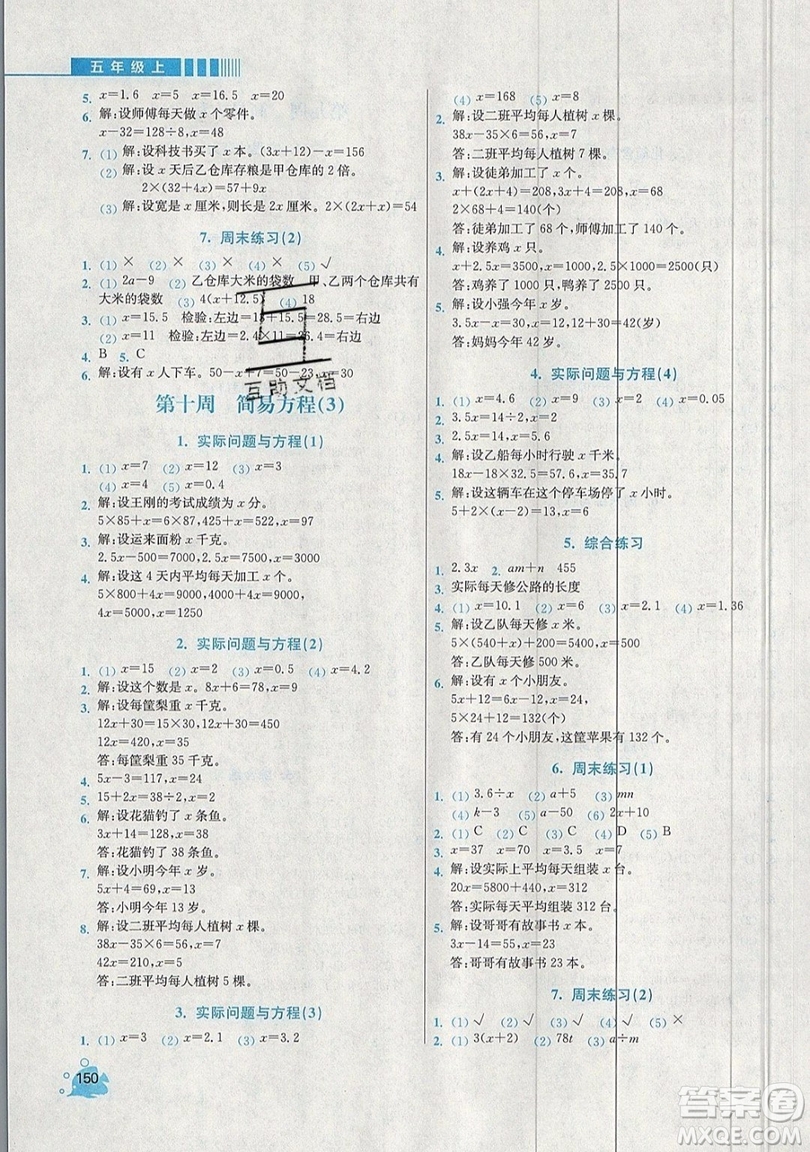 五年级上
5. x=1.6 x=5 x=16.5 x=20
6. 解:设师傅每天做 x 个零件。
x-32=128÷8,x=48
7. (1) 解:设科技书买了 x 本。(3x+12)-x=156
(2) 解:设 x 天后乙仓库存粮是甲仓库的 2 倍。
2×(32+4x)=57+9x
(3) 解:设宽是 x 厘米,则长是 2x 厘米。2×(2x+x)=54
7. 周末练习(2)
1. (1) × (2) × (3) × (4) × (5) √
2. (1) 2a-9 (2) 乙仓库大米的袋数 甲、乙两个仓库共有
大米的袋数 (3) 4(x+12.5) (4) 18
3. (1) x=15.5 检验:左边=13+15.5=28.5=右边
(2) x=11 检验:左边=2.4×11=26.4=右边
4. B 5. C
6. 解:设有 x 人下车。50-x+50=110-23
互助文档
第十周 简易方程(3)
1. 实际问题与方程(1)
1. (1) x=7 (2) x=12 (3) x=3
(4) x=4 (5) x=0.4
2. 解:设王刚的考试成绩为 x 分。
5×85+x=6×87,425+x=522,x=97
3. 解:设运来面粉 x 千克。
2.5x-500=7000,2.5x=7500,x=3000
4. 解:设这 4 天内平均每天加工 x 个。
5×800+4x=9000,4000+4x=9000,
4x=5000,x=1250
2. 实际问题与方程(2)
1. (1) x=15 (2) x=3 (3) x=0.51 (4) x=4.2
2. 解:设这个数是 x。8x+6=78,x=9
3. 解:设每筐梨重 x 千克。
12x+30=15×30,12x+30=450
12x=420,x=35
答:每筐梨重 35 千克。
4. 5x-3=112,x=23
5. 15+2x=38,x=11.5
6. 解:设花猫钓了 x 条鱼。
3x+14=128,x=38
答:花猫钓了 38 条鱼。
7. 解:设小明今年 x 岁。
5x+4=69,x=13
答:小明今年 13 岁。
8. 解:设二班平均每人植树 x 棵。
38x-35×6=x,x=5
42x=210,x=5
答:二班平均每人植树 5 棵。
3. 实际问题与方程(3)
1. (1) x=3 (2) x=3 (3) x=3.2
150
(4) x=16 (5) x=8
2. 解:设二班平均每人植树 x 棵。
38x-35×6=56,x=7
答:二班平均每人植树 7 棵。
3. 解:设徒弟加工了 x 个。
x+(2x+4)=208,3x+4=208,x=68
2×68+4=140(个)
答:徒弟加工了 68 个,师傅加工了 140 个。
4. 解:设养鸡 x 只。
x+2.5x=3500,x=1000,2.5x=2500(只)
答:鸡养了 1000 只,鸭养了 2500 只。
5. 解:设小强今年 x 岁。
3.5x-x=30,x=12,12+30=42(岁)
答:妈妈今年 42 岁。
4. 实际问题与方程(4)
1. (1) x=4.6 (2) x=9 (3) x=2 (4) x=0.05
2. 3.5x=14÷2,x=2
3. 2.5x=14,x=5.6
4. 解:设乙船每小时行驶 x 千米。
18x-18×32.5=57.6,x=35.7
5. 解:设这辆车在这个停车场停了 x 小时。
5+2×(x-2)=13,x=6
5. 综合练习
1. 2.3x 2. am+n 455
3. 实际每天修公路的长度
4. (1) x=10.1 (2) x=6 (3) x=2.1 (4) x=1.36
5. 解:设乙队每天修 x 米。
5×(540+x)+200=5400,x=500
答:乙队每天修 500 米。
6. 解:设有 x 个小朋友。
5x+12=6x-12,x=24
5×24+12=132(个)
答:有 24 个小朋友,这筐苹果有 132 个。
6. 周末练习(1)
1. (1) 3.6÷x (2) a+5 (3) mn
(4) k-3 (5) a-50 (6) 2x+10
2. (1) C (2) C (3) C (4) D (5) B
3. x=37 x=70 x=3.5 x=7
4. 解:设实际上平均每天组装 x 台。
20x=5800+440,x=312
答:实际上平均每天组装 312 台。
5. 解:设哥哥有故事书 x 本。
3x-14=55,x=23
答:哥哥有故事书 23 本。
7. 周末练习(2)
1. (1) √ (2) √ (3) √ (4) √ (5) ×
2. (1) 3(x+2) (2) 78t (3) a÷m
答案圈
MXQE.COM